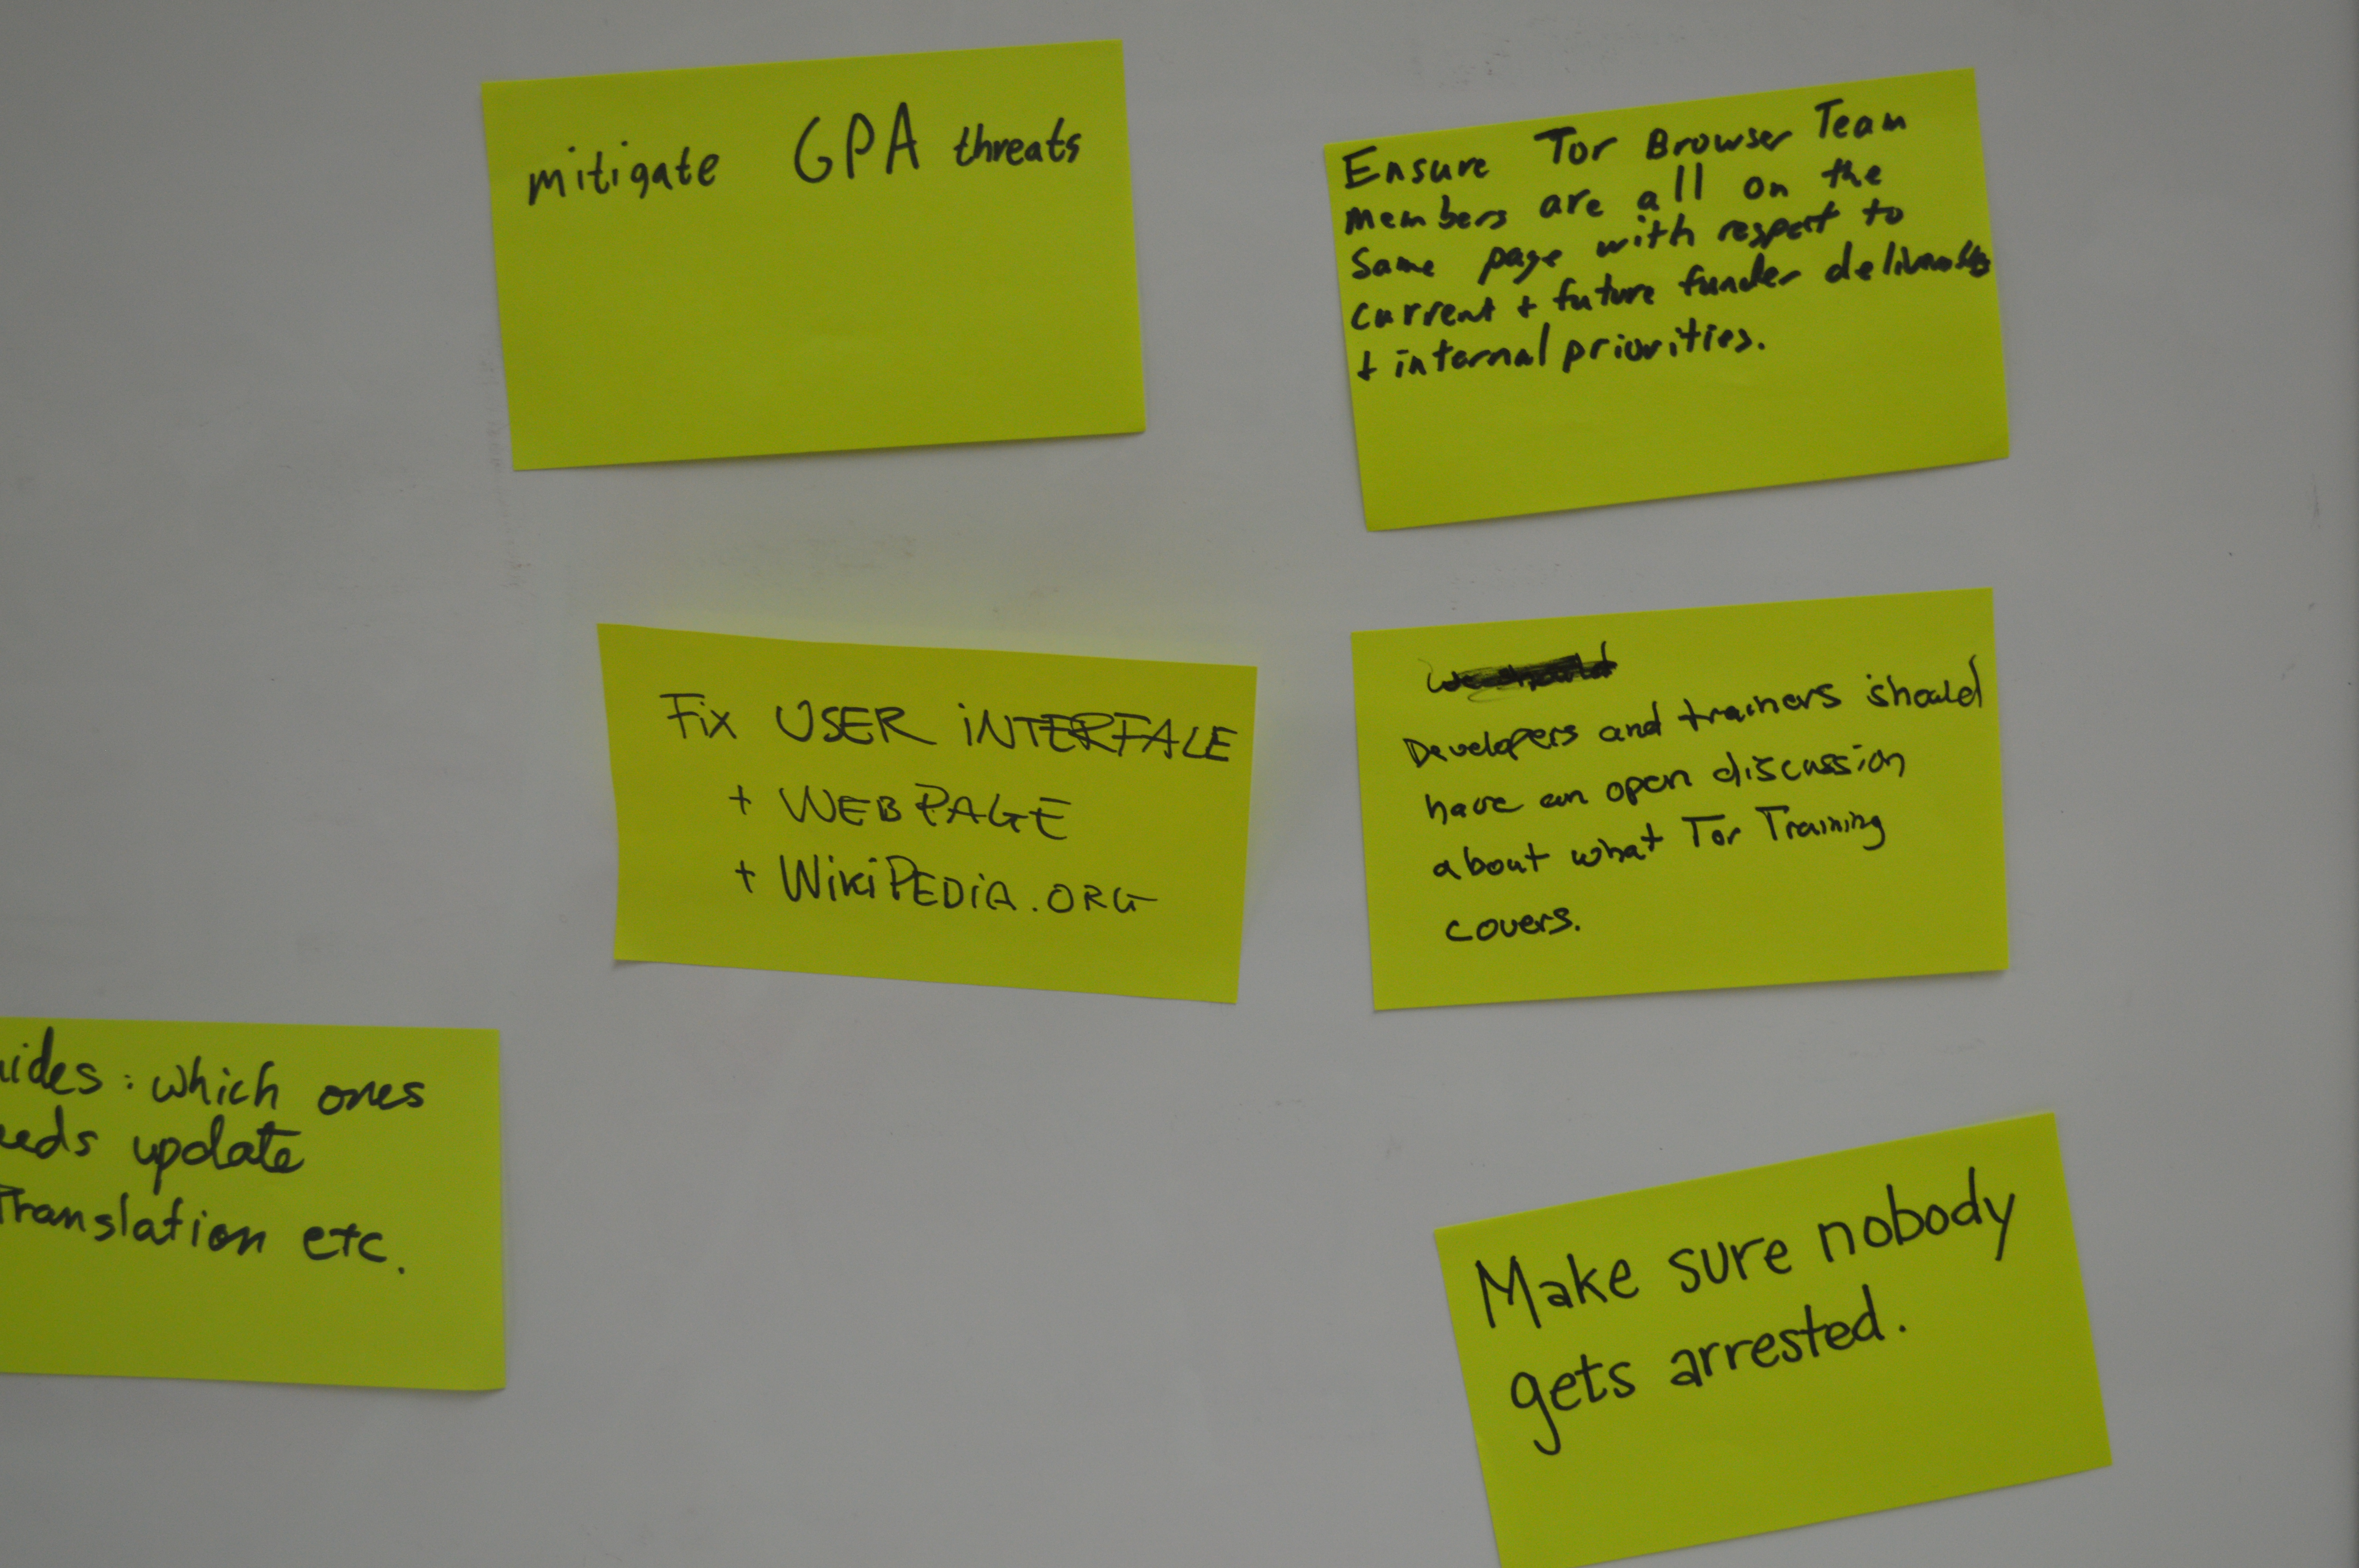 mitigate GPA threats
Ensure Tor Browser Team
members are all on the
same page with respect to
current + future funder deliverables
+ internal priorities.
Fix USER iNTERFACE
+ WEBPAGE
+ WiKiPEDiA.ORG
Developers and trainers should
have an open discussion
about what Tor Training
covers.
uides: which ones
eeds update
Translation etc.
Make sure nobody
gets arrested.